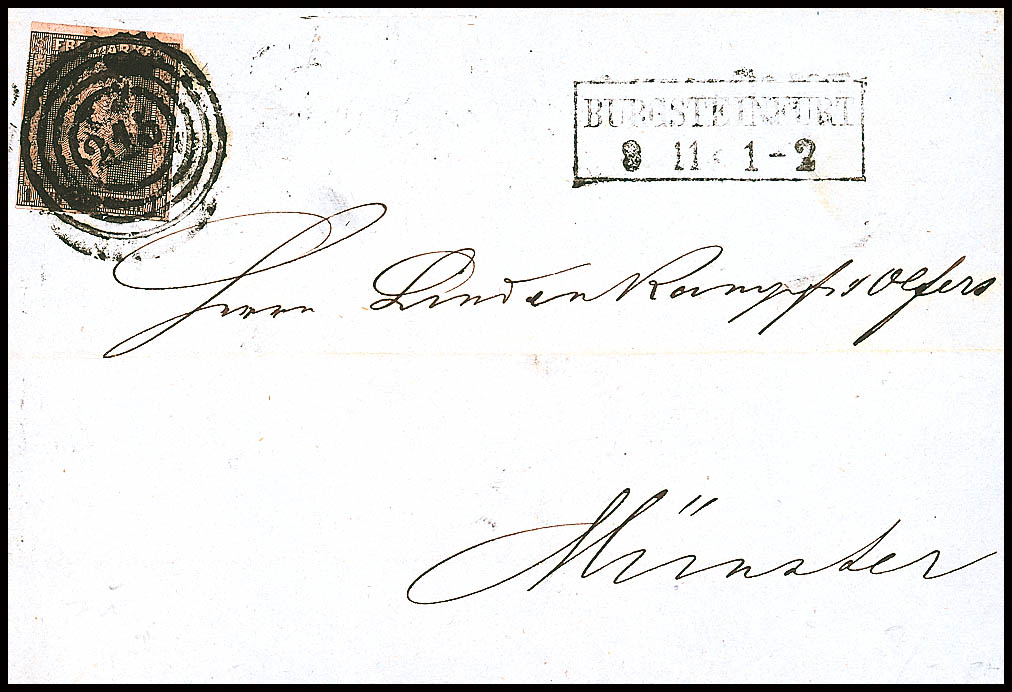 FREIMARKE
BURGSTEINFURT
8 11 1-2
Herrn Lindenkampf & Olfers
Münster